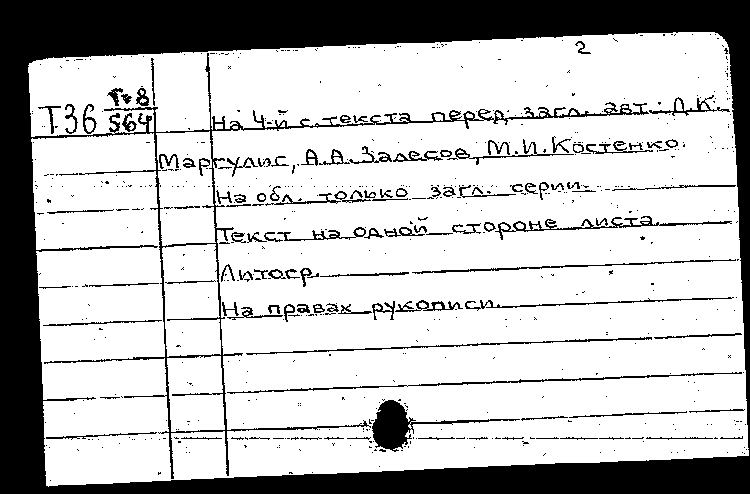 2
Т36 Тв8
564
На 4-й с. текста перед загл. авт.: Д.К.
Маргулис, А.А. Залесов, М.И. Костенко.
На обл. только загл. серии.
Текст на одной стороне листа.
Литогр.
На правах рукописи.